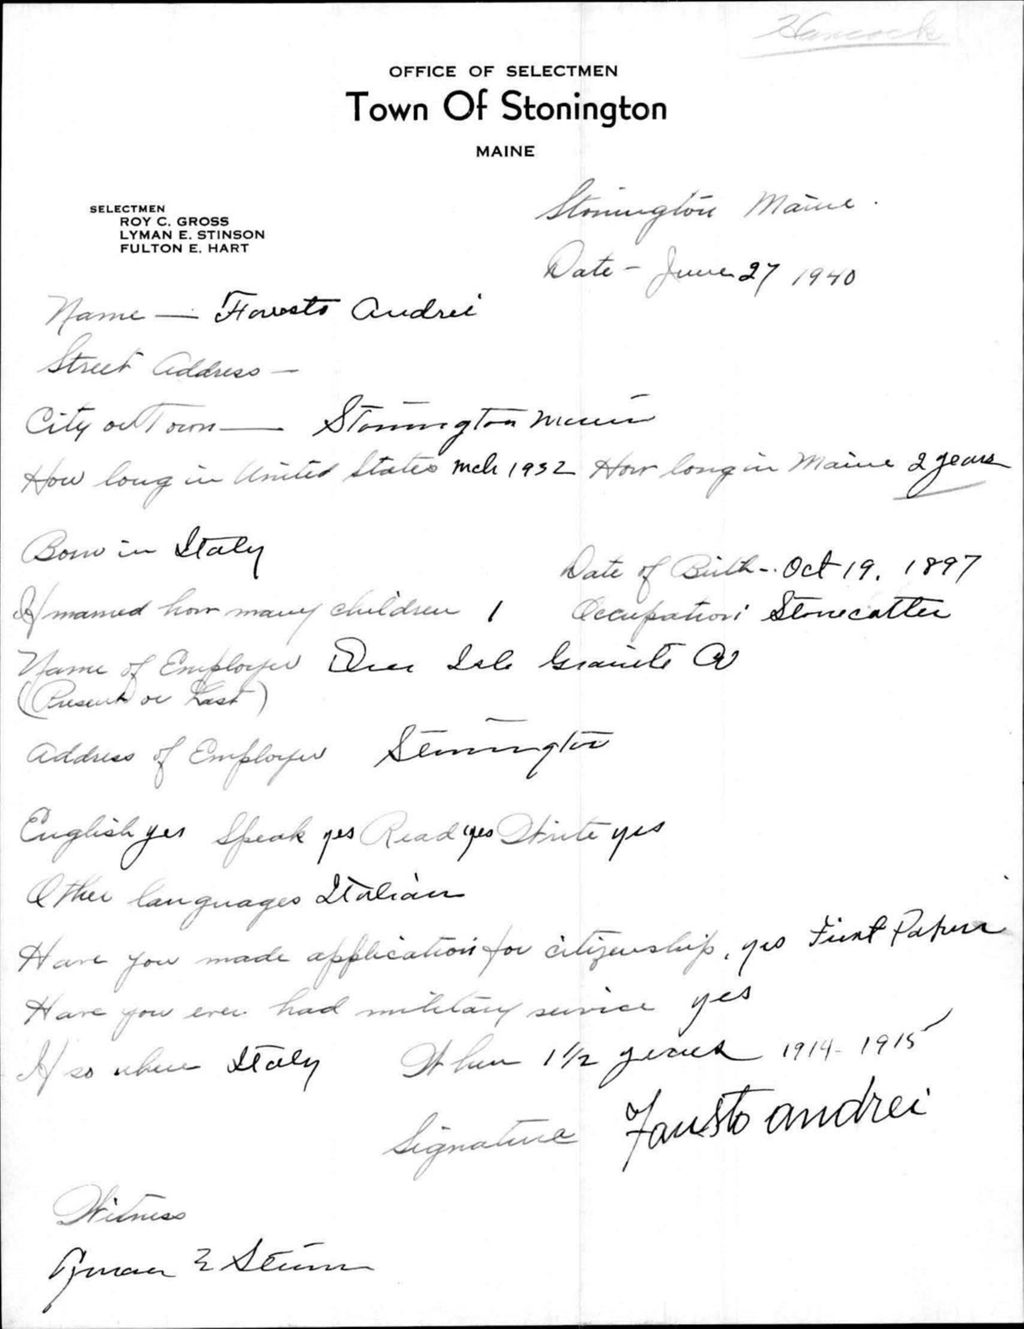 Hancock
OFFICE OF SELECTMEN
Town Of Stonington
MAINE
SELECTMEN
ROY C. GROSS
LYMAN E. STINSON
FULTON E. HART
Stonington Maine.
Date - June 27 1940
Name — Fowsto Andrei
Street Address —
City or Town — Stonington Maine
How long in United States Mch 1932 How long in Maine 2 years
Born in Italy
Date of Birth - Oct 19, 1897
If married how many children 1
Occupation Stonecutter
Name of Employer Deer Isle Granite Co
(Present or Last)
Address of Employer Stonington
English yes Speak yes Read yes Write yes
Other languages Italian
Have you made application for citizenship, yes First Papers
Have you ever had military service yes
If so where Italy When 1 1/2 years 1914-1915
Signature Fausto andrei
Witness
Lyman E Stinson